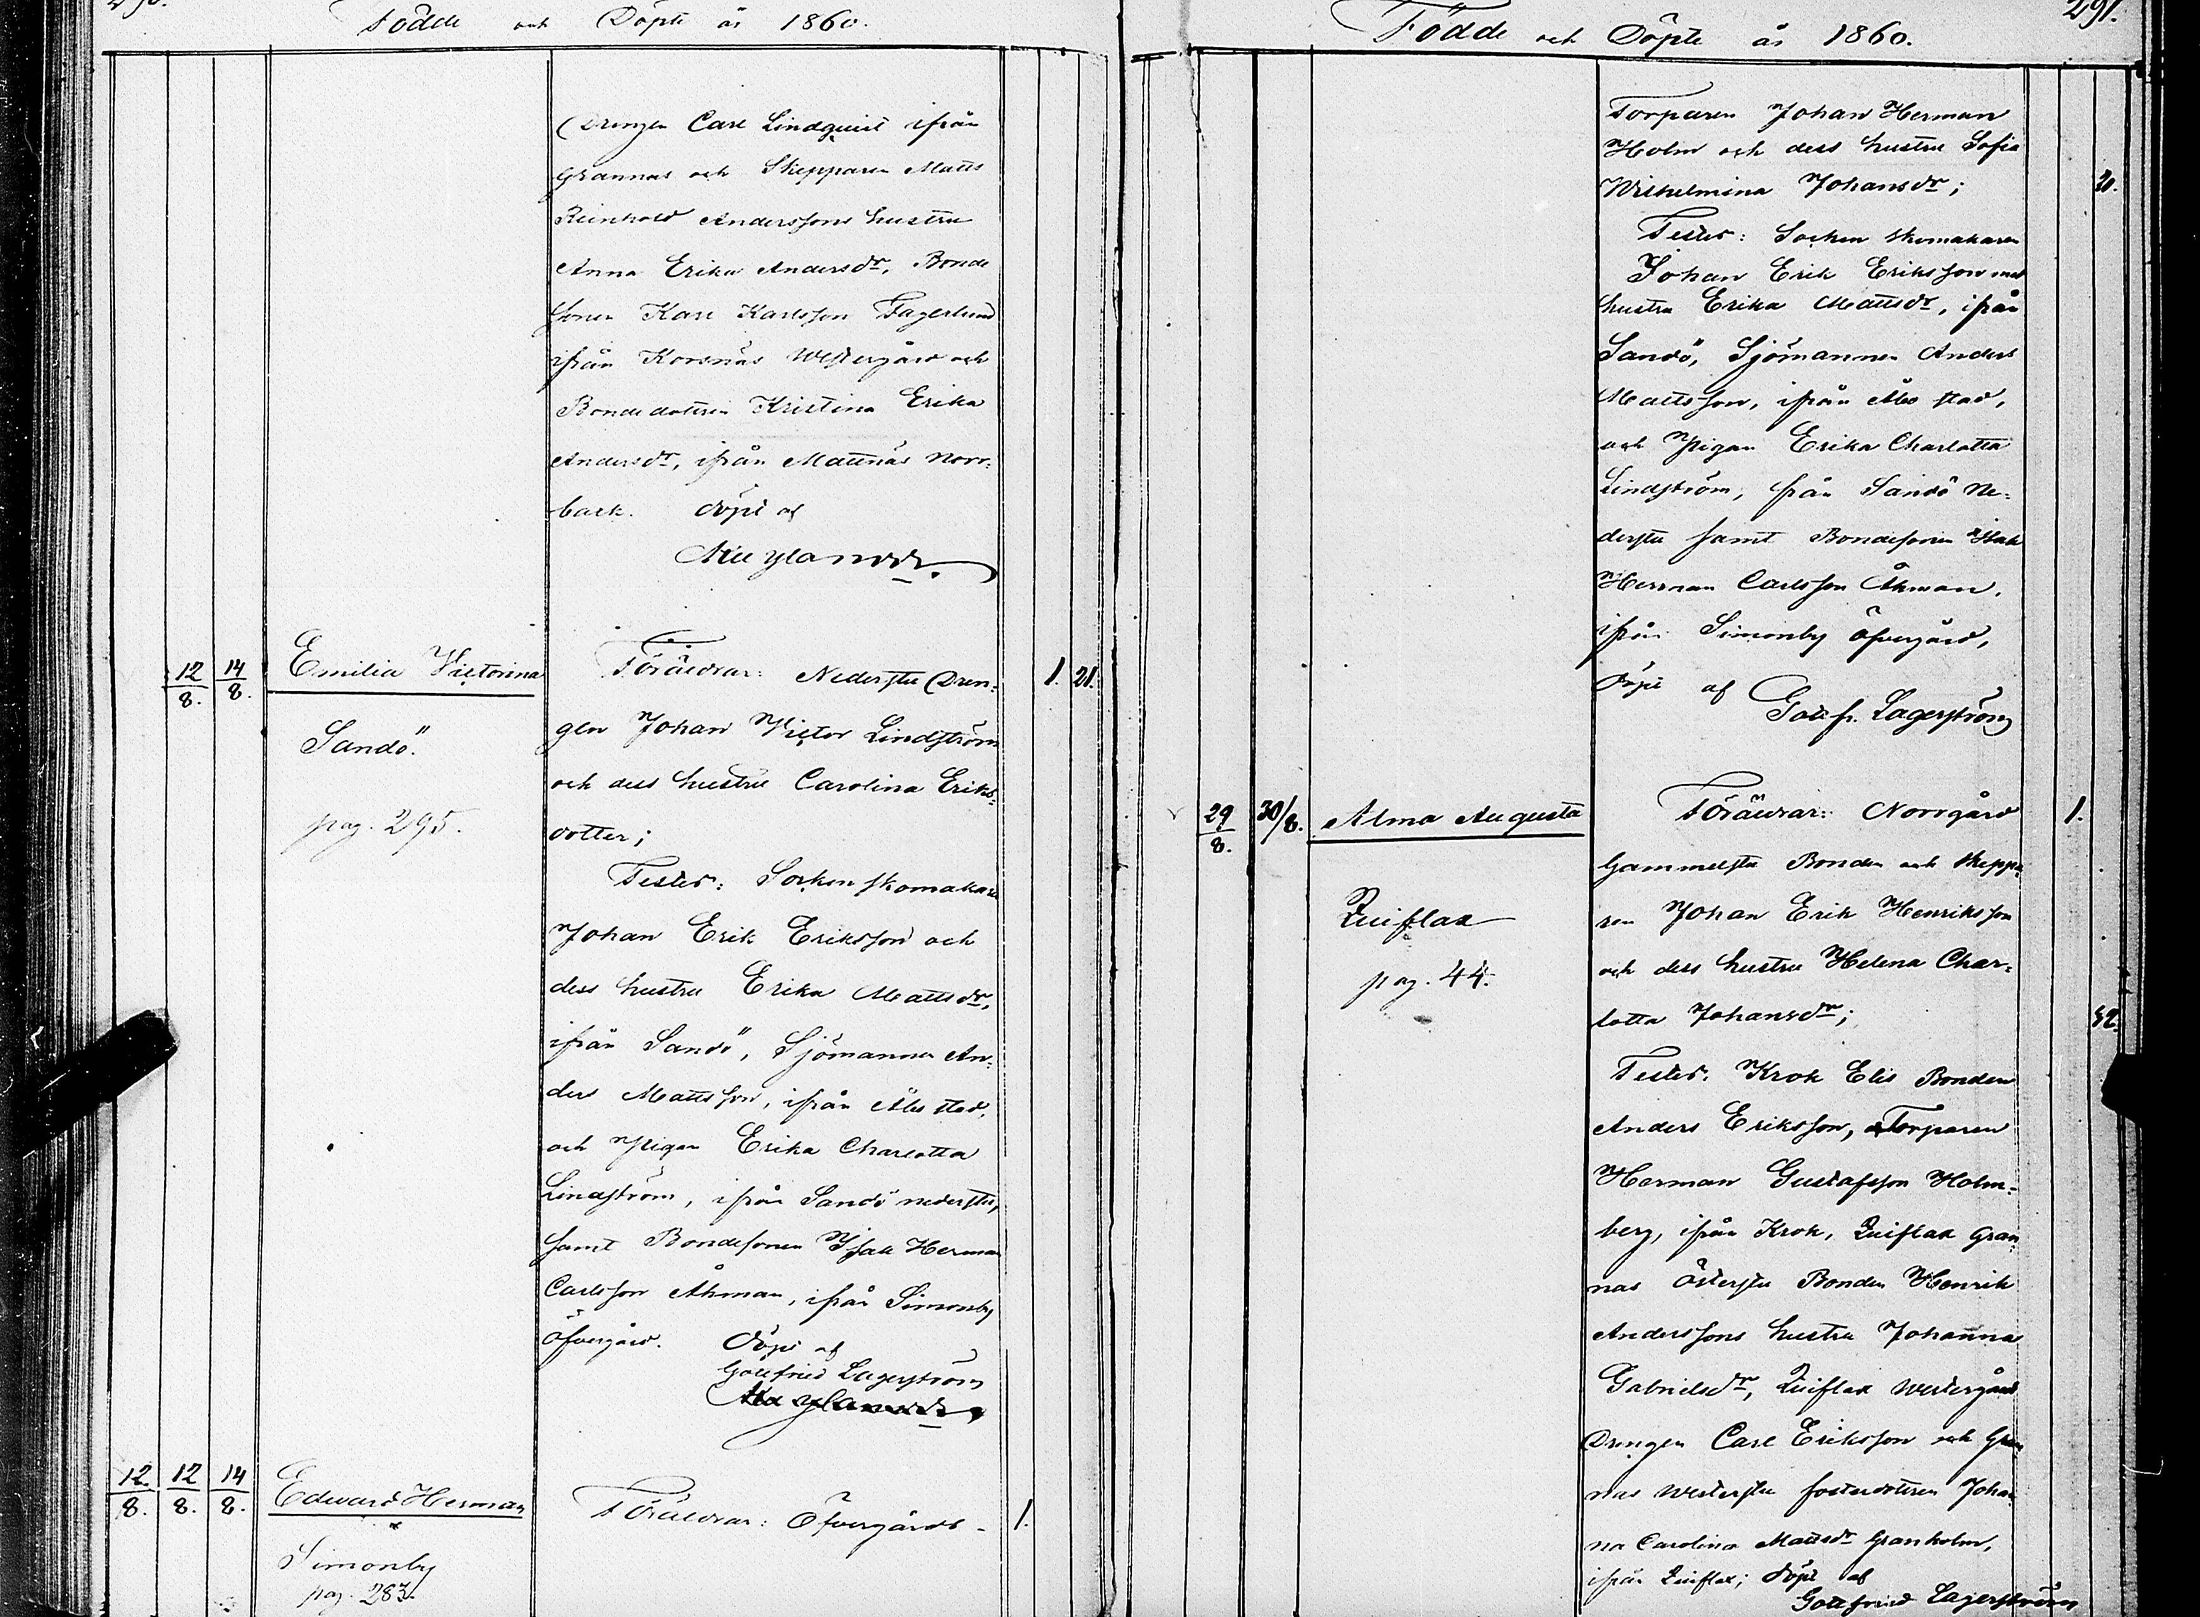 290.
Födde och Döpte år 1860.
Drengen Carl Lindquist ifrån
Grannas och Skepparen Matts
Reinhold Anderssons hustru
Anna Erika Andersdr, Bonde
sonen Karl Karlsson Fagerlund
ifrån Korsnäs Westergård och
Bondedottren Kristina Erika
Andersdr, ifrån Mattnäs Norr-
back. döpt af
12/8. 14/8. Emilia Victorina Föräldrar: Nedersta Dren- 1. 21.
Sandö. gen Johan Victor Lindström
och dess hustru Carolina Eriks-
pag. 295. dotter;
Testes: Sockenskomakaren
Johan Erik Eriksson och
dess hustru Erika Mattsdr,
ifrån Sandö, Sjömannen An-
ders Mattsson, ifrån Åbo stad,
och Pigan Erika Charlotta
Lindström, ifrån Sandö nedersta,
samt Bondesonen Isak Herman
Carlsson Åhman, ifrån Simonby
Öfvergård. Döpt af
Gottfried Lagerström
12/8. 12/8. 14/8. Edward Herman Föräldrar: Öfvergårds- 1.
Simonby
pag. 283.
291.
Födde och Döpte år 1860.
Torparen Johan Herman
Holm och dess hustru Sofia
Wilhelmina Johansdr;
Testes: Socken skomakaren
Johan Erik Eriksson med
hustru Erika Mattsdr, ifrån
Sandö, Sjömannen Anders
Mattsson, ifrån Åbo stad,
och Pigan Erika Charlotta
Lindström, från Sandö Ne-
dersta samt Bondesonen Isak
Herman Carlsson Åhman,
ifrån Simonby Öfvergård,
döpt af
Gottfr. Lagerström
29/8. 30/8. Alma Augusta Föräldrar: Norrgård 1.
Gammelsta Bonden och Skeppa-
Quiflax ren Johan Erik Henriksson
och dess hustru Helena Char-
pag. 44. lotta Johansdr; 32.
Testes: Krok Elis Bonden
Anders Eriksson, Torparen
Herman Gustafsson Holm-
berg, ifrån Krok, Quiflax Gran
nas Östersta Bonden Henrik
Anderssons hustru Johanna
Gabrielsdr, Quiflax Westergård
Drengen Carl Eriksson och Gran
nas Westersta fosterdottren Johan
na Carolina Mattsdr Granholm,
ifrån Quiflax; döpt af
Gottfried Lagerström